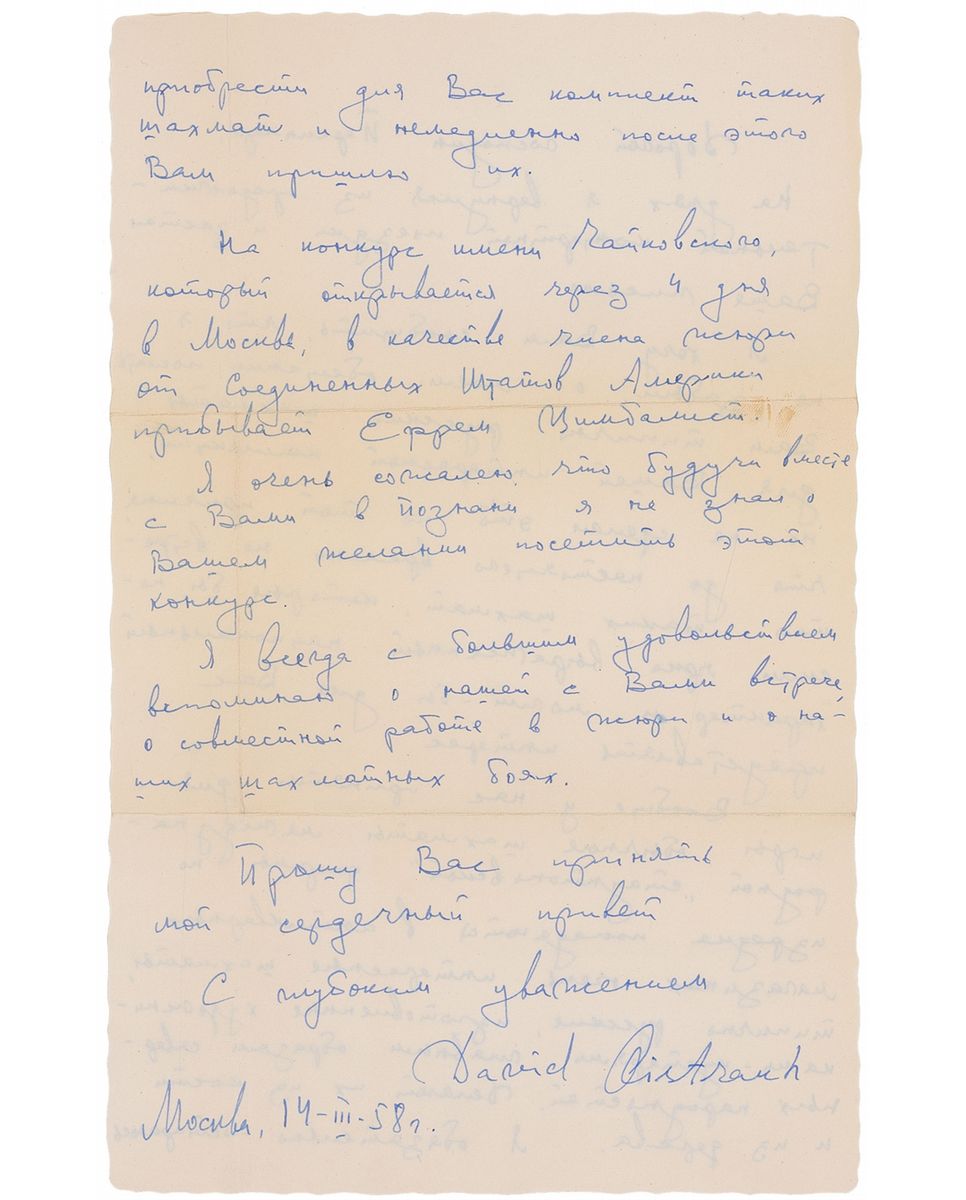 приобрести для Вас комплект таких
шахмат и немедленно после этого
Вам пришлю их.
На конкурс имени Чайковского,
который открывается через 4 дня
в Москве, в качестве члена жюри
от Соединенных Штатов Америки
прибывает Ефрем Цимбалист.
Я очень сожалею, что будучи вместе
с Вами в Познани я не знал о
Вашем желании посетить этот
конкурс.
Я всегда с большим удовольствием
вспоминаю о нашей с Вами встрече,
о совместной работе в жюри и о на-
ших шахматных боях.
Прошу Вас принять
мой сердечный привет
С глубоким уважением
David Oistrakh
Москва, 14-III-58 г.